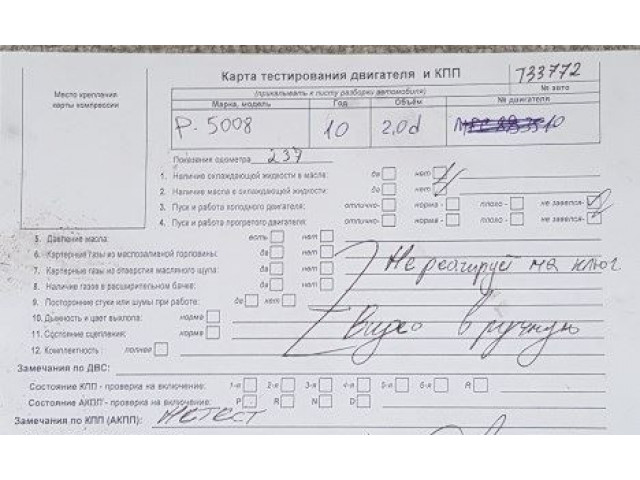 Карта тестирования двигателя и КПП
733772
№ авто
Место крепления карты компрессии
(прикалывать к листу разборку автомобиля)
Марка, модель Год Объём № двигателя
P. 5008 10 2,0d
Показания одометра 237
1. Наличие охлаждающей жидкости в масле: да нет
2. Наличие масла в охлаждающей жидкости: да нет
3. Пуск и работа холодного двигателя: отлично- норма - плохо - не завелся-
4. Пуск и работа прогретого двигателя: отлично- норма - плохо - не завелся-
5. Давление масла: есть нет
6. Картерные газы из маслозаливной горловины: да нет
7. Картерные газы из отверстия масляного щупа: да нет
8. Наличие газов в расширительном бачке: да нет
Не реагируй на ключ
9. Посторонние стуки или шумы при работе: да нет
10. Дымность и цвет выхлопа: норма
Видео вручную
11. Состояние сцепления: норма
12. Комплектность : полная
Замечания по ДВС:
Состояние КПП - проверка на включение: 1-я 2-я 3-я 4-я 5-я 6-я R
Состояние АКПП - проверка на включение: P R N D
Замечания по КПП (АКПП): не тест